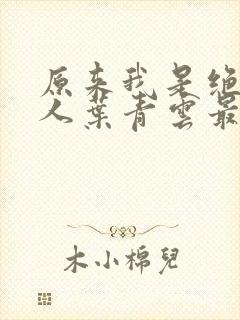 原来我是绝
人葉青雲最
木小棉兒